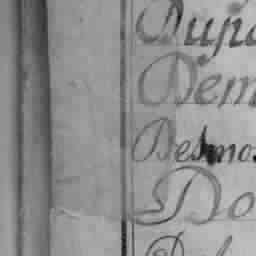 Dupa
Dem
Desmo
Do